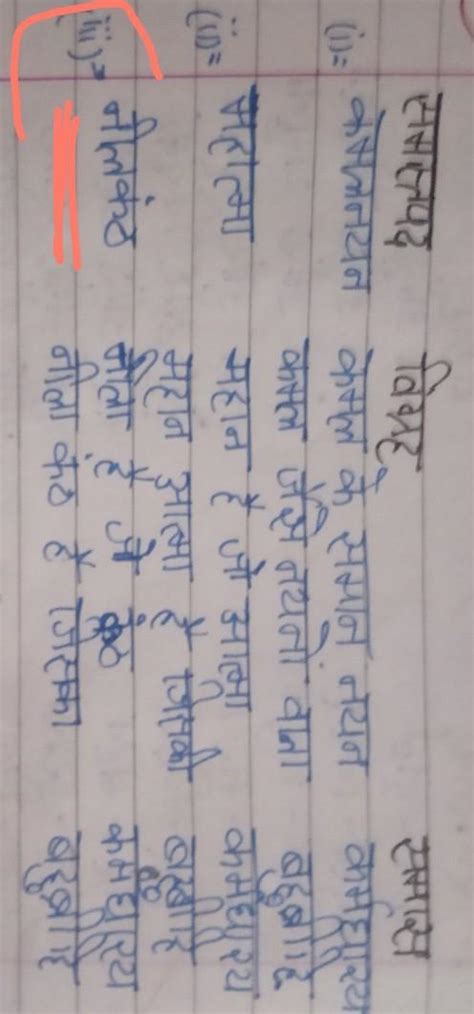 समस्तपद विग्रह समास
(i)= कमलनयन कमल के समान नयन कर्मधारय
कमल जैसे नयनों वाला बहुब्रीहि
(ii)= महात्मा महान है जो आत्मा कर्मधारय
महान आत्मा है जिसकी बहुब्रीहि
(iii)= नीलकंठ नीला है जो कंठ कर्मधारय
नीला कंठ है जिसका बहुब्रीहि